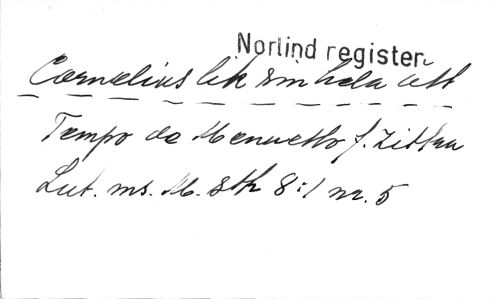 Norlind register
Cornelius lik sin hela ätt
Tempo de Menuetto f. Zittau
Lut. ms. M. sth 8:1 nr. 5